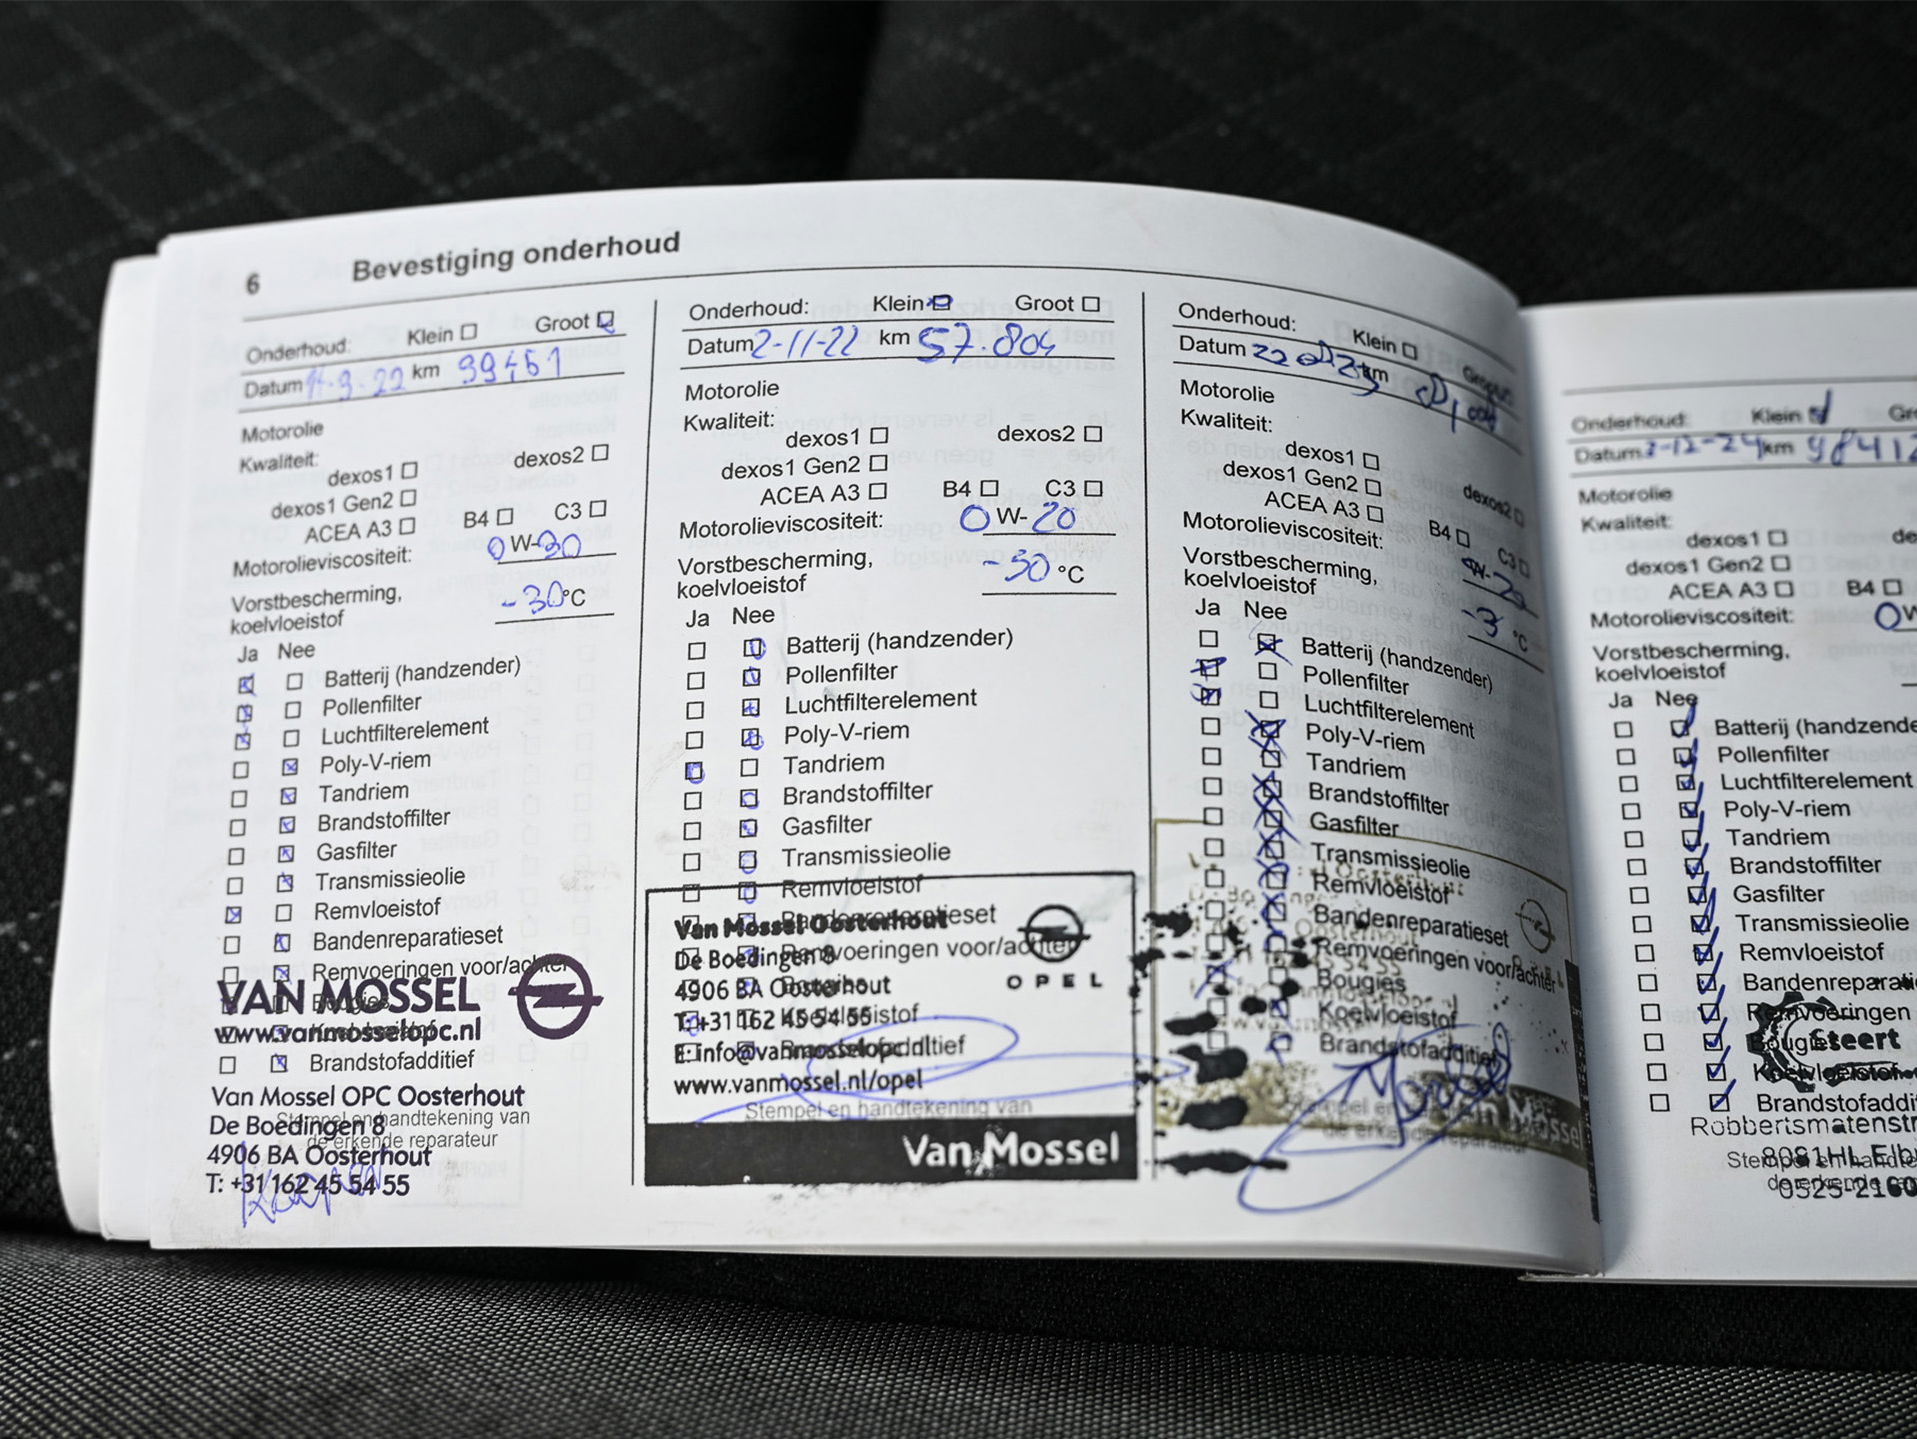 6 Bevestiging onderhoud
Onderhoud: Klein Groot
Datum km
Motorolie
Kwaliteit:
dexos1 dexos2
dexos1 Gen2
ACEA A3 B4 C3
Motorolieviscositeit: 0 W-
Vorstbescherming,
koelvloeistof -30 °C
Ja Nee
Batterij (handzender)
Pollenfilter
Luchtfilterelement
Poly-V-riem
Tandriem
Brandstoffilter
Gasfilter
Transmissieolie
Remvloeistof
Bandenreparatieset
Remvoeringen voor/achter
Bougies
VAN MOSSEL
www.vanmosselopc.nl
Brandstofadditief
Van Mossel OPC Oosterhout
Stempel en handtekening van
De Boedingen 8
de erkende reparateur
4906 BA Oosterhout
T: +31 162 45 54 55
Onderhoud: Klein Groot
Datum 2-11-22 km 57.804
Motorolie
Kwaliteit:
dexos1 dexos2
dexos1 Gen2
ACEA A3 B4 C3
Motorolieviscositeit: 0 W-20
Vorstbescherming,
koelvloeistof -30 °C
Ja Nee
Batterij (handzender)
Pollenfilter
Luchtfilterelement
Poly-V-riem
Tandriem
Brandstoffilter
Gasfilter
Transmissieolie
Remvloeistof
Bandenreparatieset
Van Mossel Oosterhout
Remvoeringen voor/achter
De Boedingen 8
4906 BA Oosterhout
OPEL
Koelvloeistof
T: +31 162 45 54 55
Brandstofadditief
E: info@vanmosselopc.nl
www.vanmossel.nl/opel
Stempel en handtekening van
Van Mossel
Onderhoud: Klein
Datum km
Motorolie
Kwaliteit:
dexos1 dexos2
dexos1 Gen2
ACEA A3 B4 C3
Motorolieviscositeit: W-
Vorstbescherming,
koelvloeistof °C
Ja Nee
Batterij (handzender)
Pollenfilter
Luchtfilterelement
Poly-V-riem
Tandriem
Brandstoffilter
Gasfilter
Transmissieolie
Remvloeistof
Bandenreparatieset
Remvoeringen voor/achter
Bougies
Koelvloeistof
Brandstofadditief
Mossel
Onderhoud: Klein
Datum -12-24 km 98412
Motorolie
Kwaliteit:
dexos1
dexos1 Gen2
ACEA A3 B4
Motorolieviscositeit: 0 W
Vorstbescherming,
koelvloeistof
Ja Nee
Batterij (handzende
Pollenfilter
Luchtfilterelement
Poly-V-riem
Tandriem
Brandstoffilter
Gasfilter
Transmissieolie
Remvloeistof
Bandenreparati
Remvoeringen
Bougies
Steert
Koelvloeistof
Brandstofaddi
Robbertsmatenstr
8081HL Elbu
0525-2160